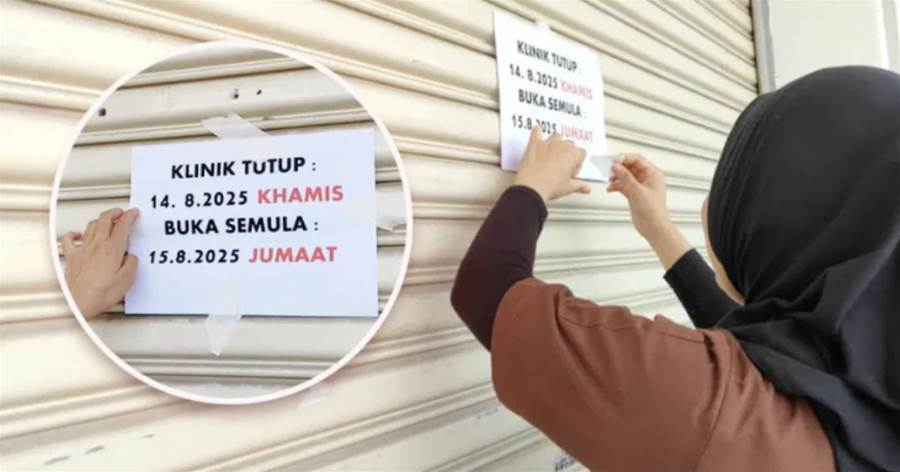 KLINIK TUTUP :
14. 8.2025 KHAMIS
BUKA SEMULA :
15.8.2025 JUMAAT
KLINIK TUTUP :
14. 8.2025 KHAMIS
BUKA SEMULA :
15.8.2025 JUMAAT